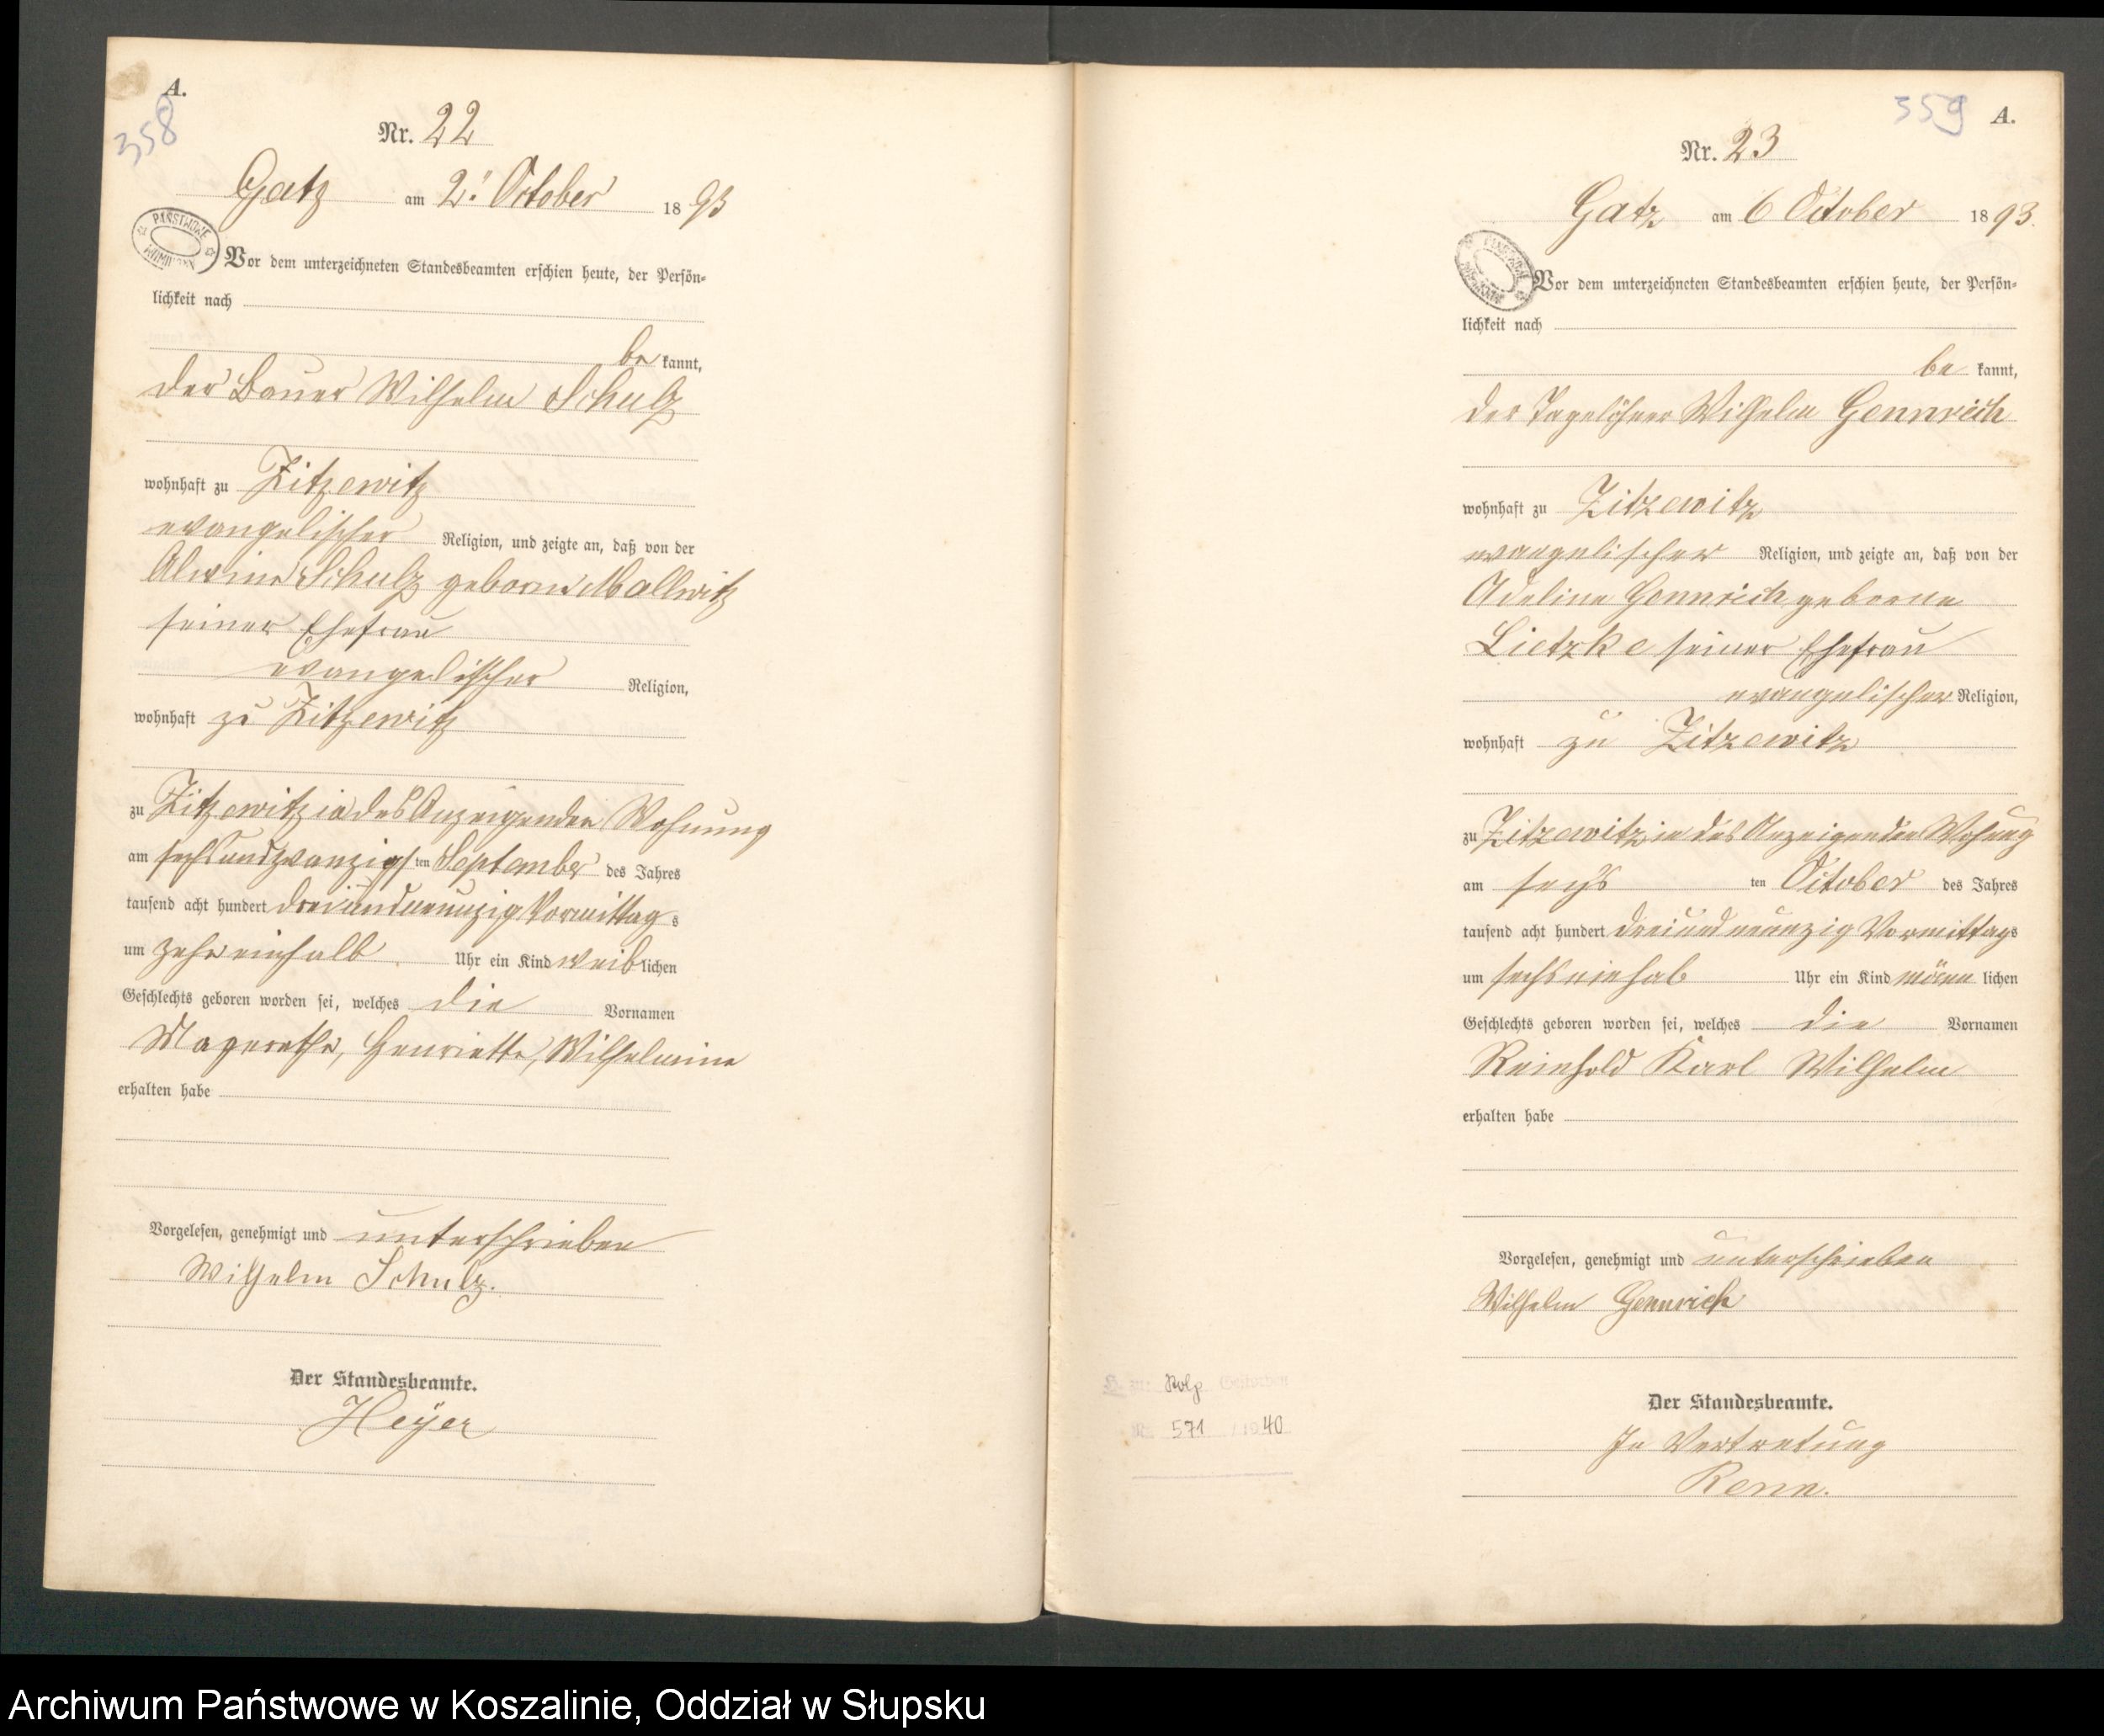 A.
358
Nr. 22
Gatz am 2. October 1893
Vor dem unterzeichneten Standesbeamten erschien heute, der Persön-
lichkeit nach
be kannt,
der Bauer Wilhelm Schulz
wohnhaft zu Zitzewitz
evangelischer Religion, und zeigte an, daß von der
Alwine Schulz geborne Mallwitz
seiner Ehefrau
evangelischer Religion,
wohnhaft zu Zitzewitz
zu Zitzewitz in des Anzeigenden Wohnung
am sechsundzwanzigsten September des Jahres
tausend acht hundert dreiundneunzig Vormittags
um zehn einhalb Uhr ein Kind weiblichen
Geschlechts geboren worden sei, welches die Vornamen
Magerethe, Henriette, Wilhelmine
erhalten habe
Vorgelesen, genehmigt und unterschrieben
Wilhelm Schulz.
Der Standesbeamte.
Heyer
359 A.
Nr. 23
Gatz am 6 October 1893.
Vor dem unterzeichneten Standesbeamten erschien heute, der Persön-
lichkeit nach
be kannt,
der Tagelöhner Wilhelm Gennrich
wohnhaft zu Zitzewitz
evangelischer Religion, und zeigte an, daß von der
Adeline Gennrich geborne
Lietzke seiner Ehefrau
evangelischer Religion,
wohnhaft zu Zitzewitz
zu Zitzewitz in des Anzeigenden Wohung
am sechs ten October des Jahres
tausend acht hundert dreiundneunzig Vormittags
um sechs einhab Uhr ein Kind männlichen
Geschlechts geboren worden sei, welches die Vornamen
Reinhold Karl Wilhelm
erhalten habe
Vorgelesen, genehmigt und unterschrieben
Wilhelm Gennrich
Der Standesbeamte.
In Vertretung
571 1940
Archiwum Państwowe w Koszalinie, Oddział w Słupsku